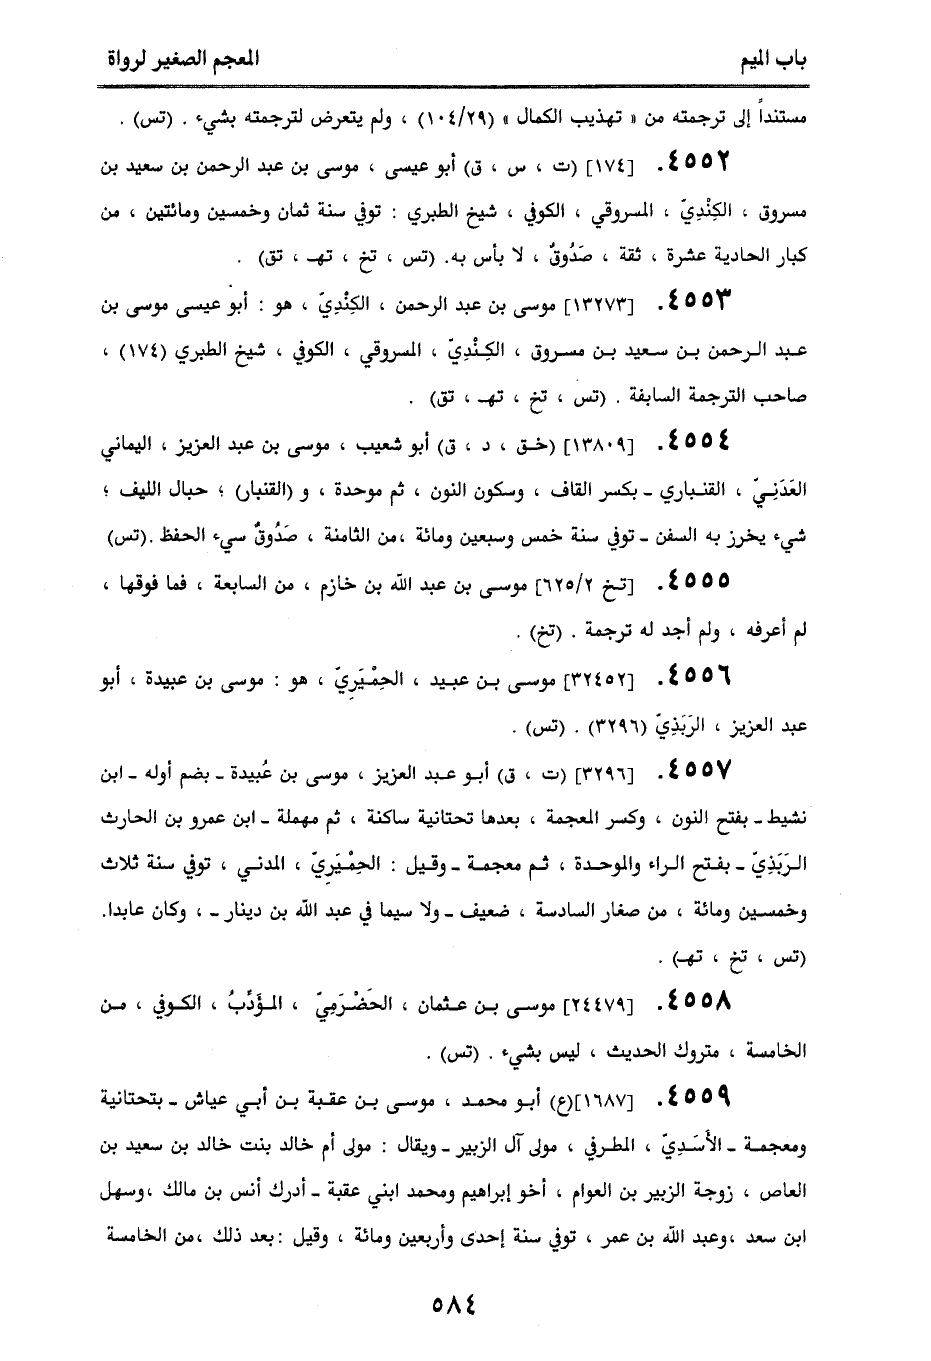 باب الميم
المعجم الصغير لرواة
مستنداً إلى ترجمته من « تهذيب الكمال » (١٠٤/٢٩) ، ولم يتعرض لترجمته بشيء . (تس) .
٤٥٥٢. [١٧٤] (ت ، س ، ق) أبو عيسى ، موسى بن عبد الرحمن بن سعيد بن
مسروق ، الكِنْدِيّ ، المسروقي ، الكوفي ، شيخ الطبري : توفي سنة ثمان وخمسين ومائتين ، من
كبار الحادية عشرة ، ثقة ، صَدُوقٌ ، لا بأس به. (تس ، تخ ، تهـ ، تق) .
٤٥٥٣. [١٣٢٧٣] موسى بن عبد الرحمن ، الكِنْدِيّ ، هو : أبو عيسى موسى بن
عبد الرحمن بن سعيد بن مسروق ، الكِنْدِيّ ، المسروقي ، الكوفي ، شيخ الطبري (١٧٤) ،
صاحب الترجمة السابقة . (تس ، تخ ، تهـ ، تق) .
٤٥٥٤. [١٣٨٠٩] (خق ، د ، ق) أبو شعيب ، موسى بن عبد العزيز ، اليماني
العَدَنِيّ ، القنباري ـ بكسر القاف ، وسكون النون ، ثم موحدة ، و (القنبار) ؛ حبال الليف ؛
شيء يخرز به السفن ـ توفي سنة خمس وسبعين ومائة ،من الثامنة ، صَدُوقٌ سيء الحفظ .(تس)
٤٥٥٥. [تخ ٦٢٥/٢] موسى بن عبد الله بن خازم ، من السابعة ، فما فوقها ،
لم أعرفه ، ولم أجد له ترجمة . (تخ) .
٤٥٥٦. [٣٢٤٥٢] موسى بن عبيد ، الحِمْيَرِيّ ، هو : موسى بن عبيدة ، أبو
عبد العزيز ، الرَبَذِيّ (٣٢٩٦) . (تس) .
٤٥٥٧. [٣٢٩٦] (ت ، ق) أبو عبد العزيز ، موسى بن عُبيدة ـ بضم أوله ـ ابن
نشيط ـ بفتح النون ، وكسر المعجمة ، بعدها تحتانية ساكنة ، ثم مهملة ـ ابن عمرو بن الحارث
الرَبَذِيّ ـ بفتح الراء والموحدة ، ثم معجمة ـ وقيل : الحِمْيَرِيّ ، المدني ، توفي سنة ثلاث
وخمسين ومائة ، من صغار السادسة ، ضعيف ـ ولا سيما في عبد الله بن دينار ـ ، وكان عابدا.
(تس ، تخ ، تهـ) .
٤٥٥٨. [٢٤٤٧٩] موسى بن عثمان ، الحَضْرَمِيّ ، المؤَدِّبُ ، الكوفي ، من
الخامسة ، متروك الحديث ، ليس بشيء . (تس) .
٤٥٥٩. [١٦٨٧](ع) أبو محمد ، موسى بن عقبة بن أبي عياش ـ بتحتانية
ومعجمة ـ الأَسَدِيّ ، المطرفي ، مولى آل الزبير ـ ويقال : مولى أم خالد بنت خالد بن سعيد بن
العاص ، زوجة الزبير بن العوام ، أخو إبراهيم ومحمد ابني عقبة ـ أدرك أنس بن مالك ،وسهل
ابن سعد ،وعبد الله بن عمر ، توفي سنة إحدى وأربعين ومائة ، وقيل :بعد ذلك ،من الخامسة
٥٨٤